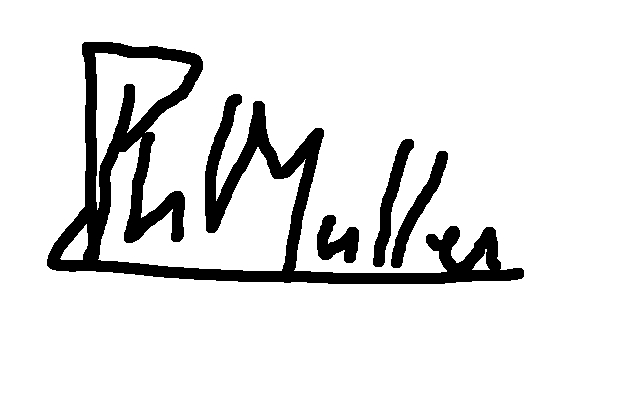 Ph Muller